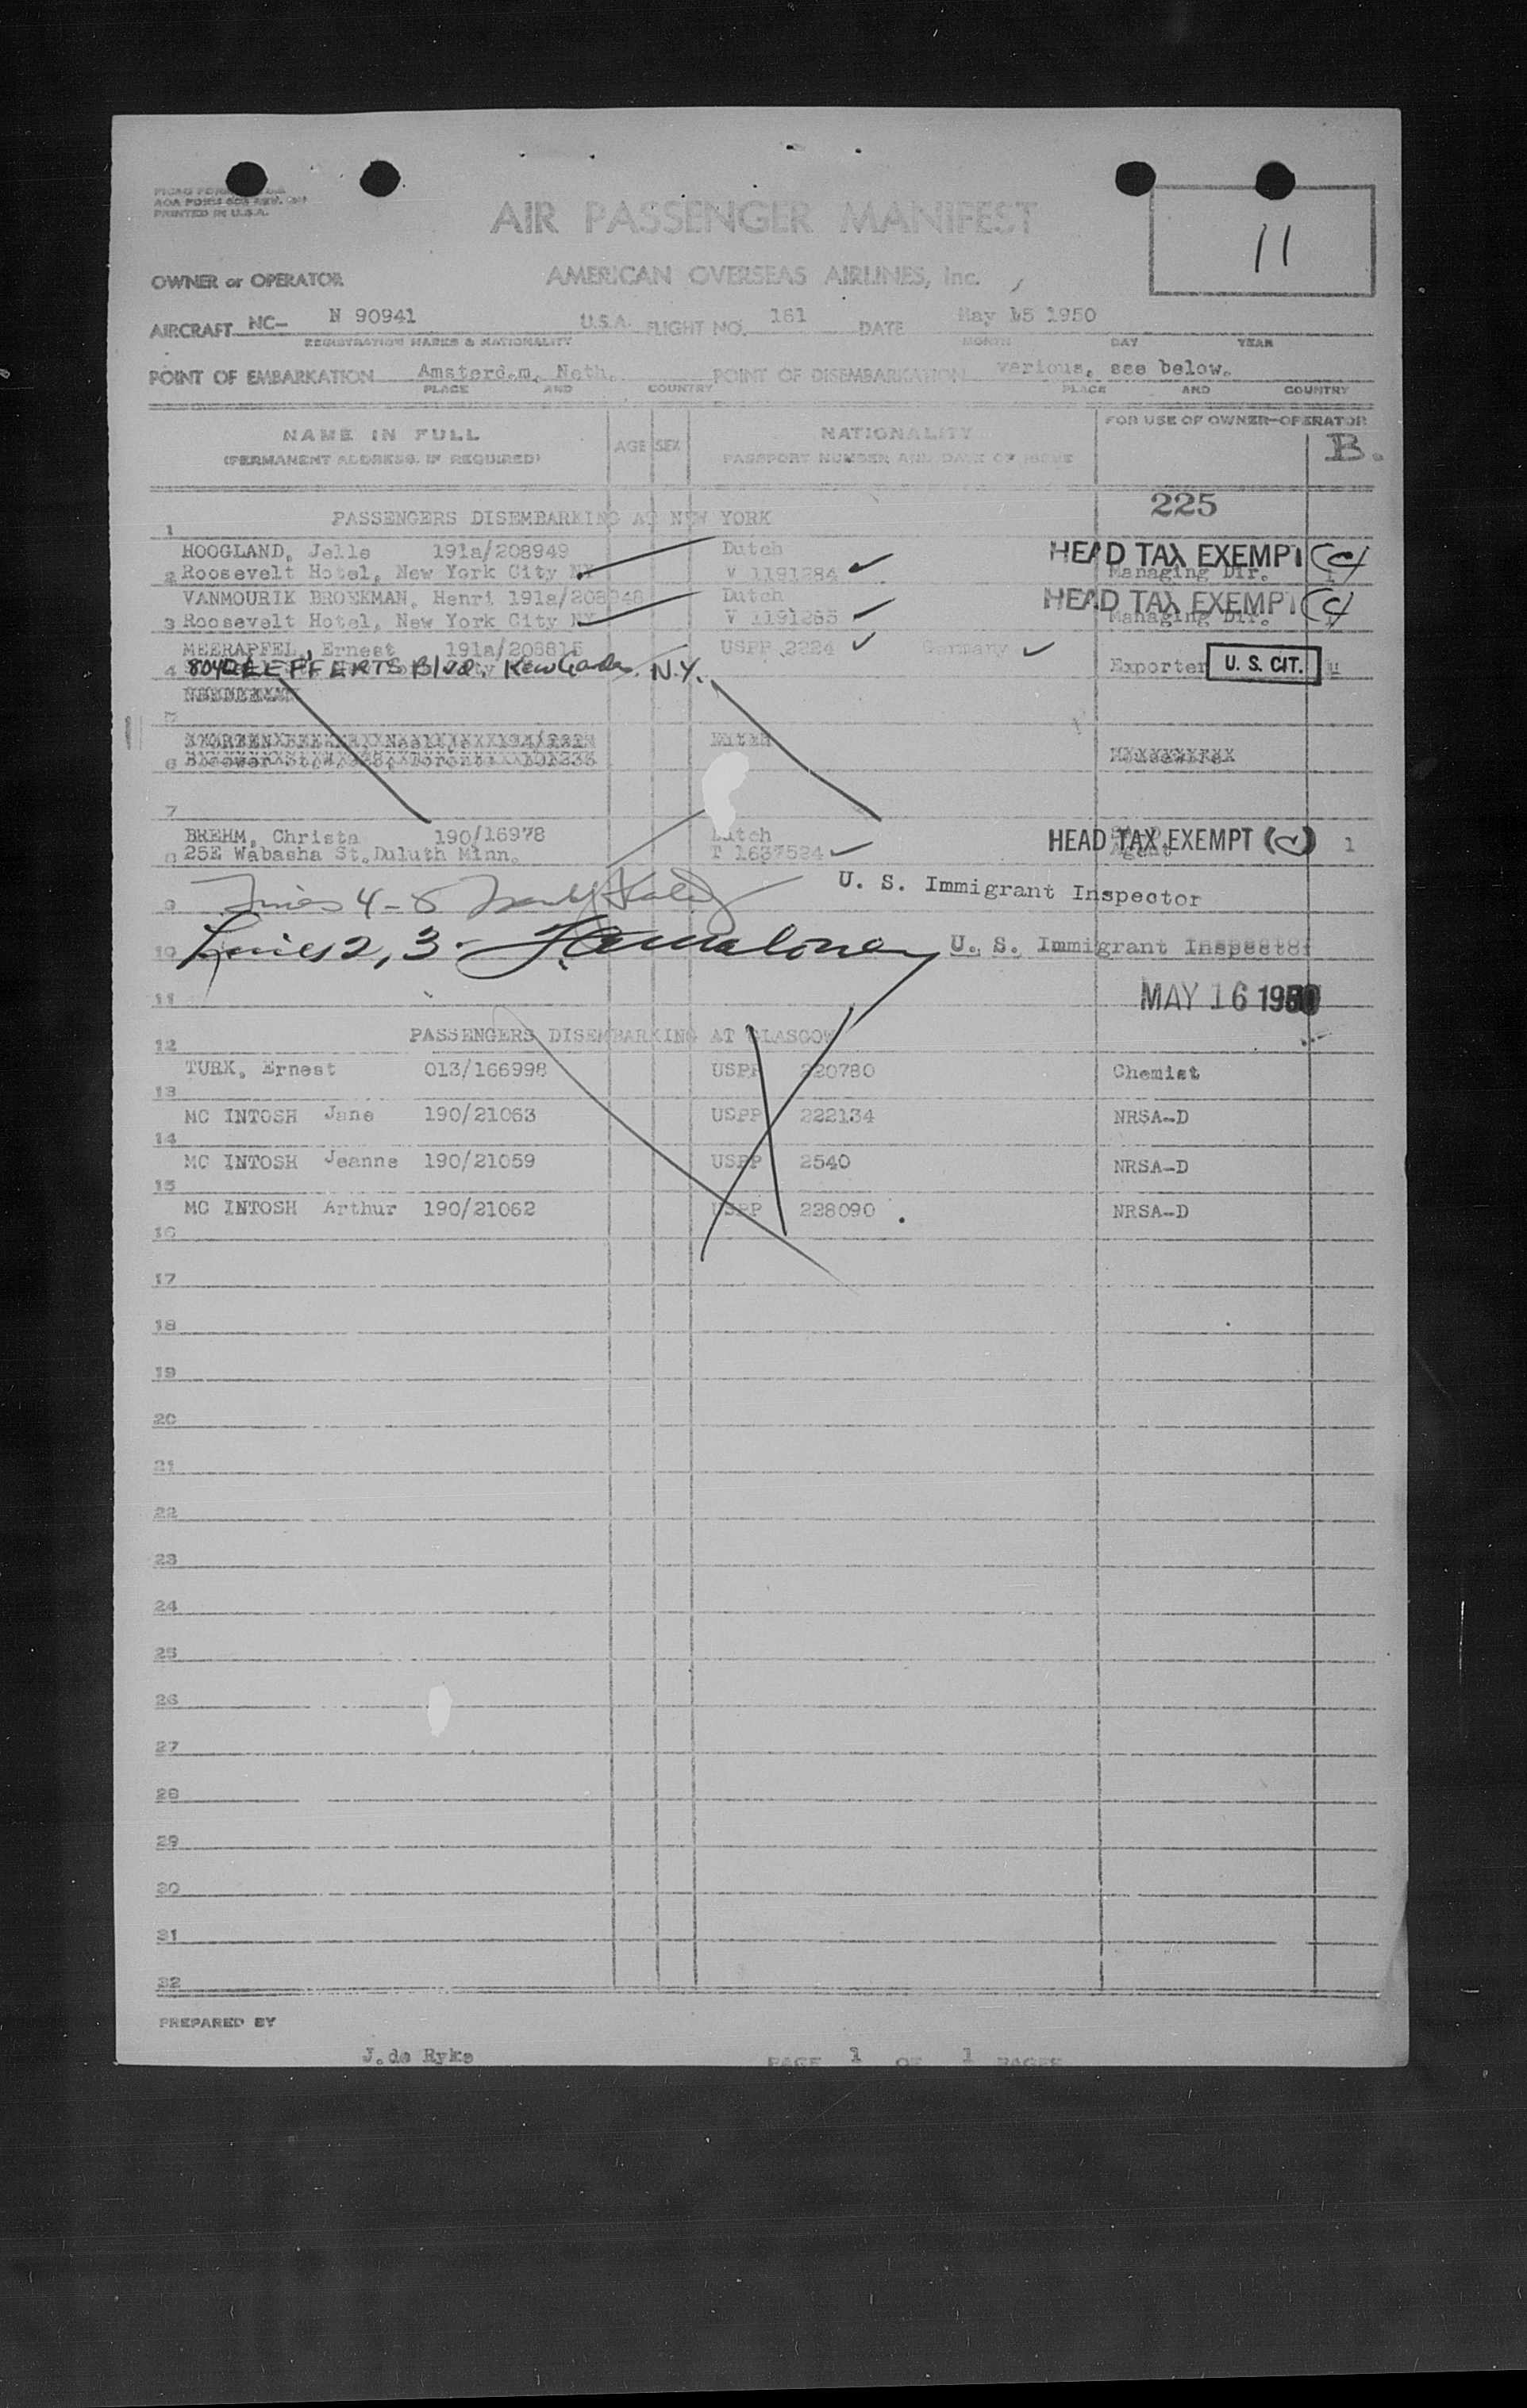 PRINTED IN U.S.A.
AIR PASSENGER MANIFEST
11
OWNER or OPERATOR AMERICAN OVERSEAS AIRLINES, Inc.
AIRCRAFT NC- N 90941 U.S.A. FLIGHT NO. 161 DATE May 15 1950
REGISTRATION MARKS & NATIONALITY MONTH DAY YEAR
POINT OF EMBARKATION Amsterdam, Neth. POINT OF DISEMBARKATION various, see below.
PLACE AND COUNTRY PLACE AND COUNTRY
NAME IN FULL AGE SEX NATIONALITY FOR USE OF OWNER-OPERATOR
(PERMANENT ADDRESS, IF REQUIRED) PASSPORT NUMBER AND DATE OF ISSUE B.
225
1 PASSENGERS DISEMBARKING AT NEW YORK
HOOGLAND, Jelle 191a/208949 Dutch HEAD TAX EXEMPT
2 Roosevelt Hotel, New York City NY V 1191284 Managing Dir. 1
VANMOURIK BROEKMAN, Henri 191a/208948 Dutch HEAD TAX EXEMPT
3 Roosevelt Hotel, New York City NY V 1191285 Managing Dir. 1
MEERAPFEL, Ernest 191a/208815 USPP 2224 Germany
4 LEFFERTS Blvd. Kew Gardens. N.Y. Exporter U. S. CIT. u
5
6
7
BREHM, Christa 190/16978 Dutch HEAD TAX EXEMPT 1
8 25E Wabasha St. Duluth Minn. T 1637524 Agent
9 Lines 4-8 U. S. Immigrant Inspector
10 Lines 2, 3- U. S. Immigrant Inspector
11 MAY 16 1950
12 PASSENGERS DISEMBARKING AT GLASGOW
TURK, Ernest 013/166998 USPP 220780 Chemist
13
MC INTOSH Jane 190/21063 USPP 222134 NRSA-D
14
MC INTOSH Jeanne 190/21059 USPP 2540 NRSA-D
15
MC INTOSH Arthur 190/21062 USPP 228090 NRSA-D
16
17
18
19
20
21
22
23
24
25
26
27
28
29
30
31
32
PREPARED BY
J. de Ryke PAGE 1 OF 1 PAGES